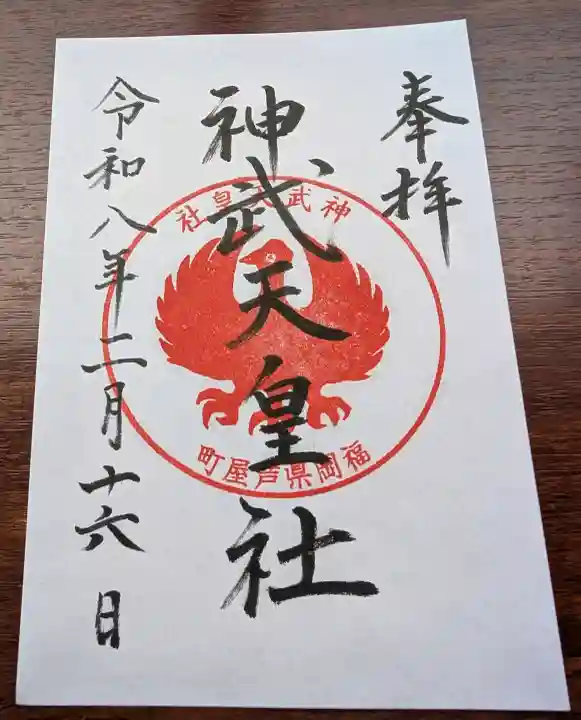 奉拝
神武天皇社
令和八年二月十六日
神武天皇社
福岡県芦屋町